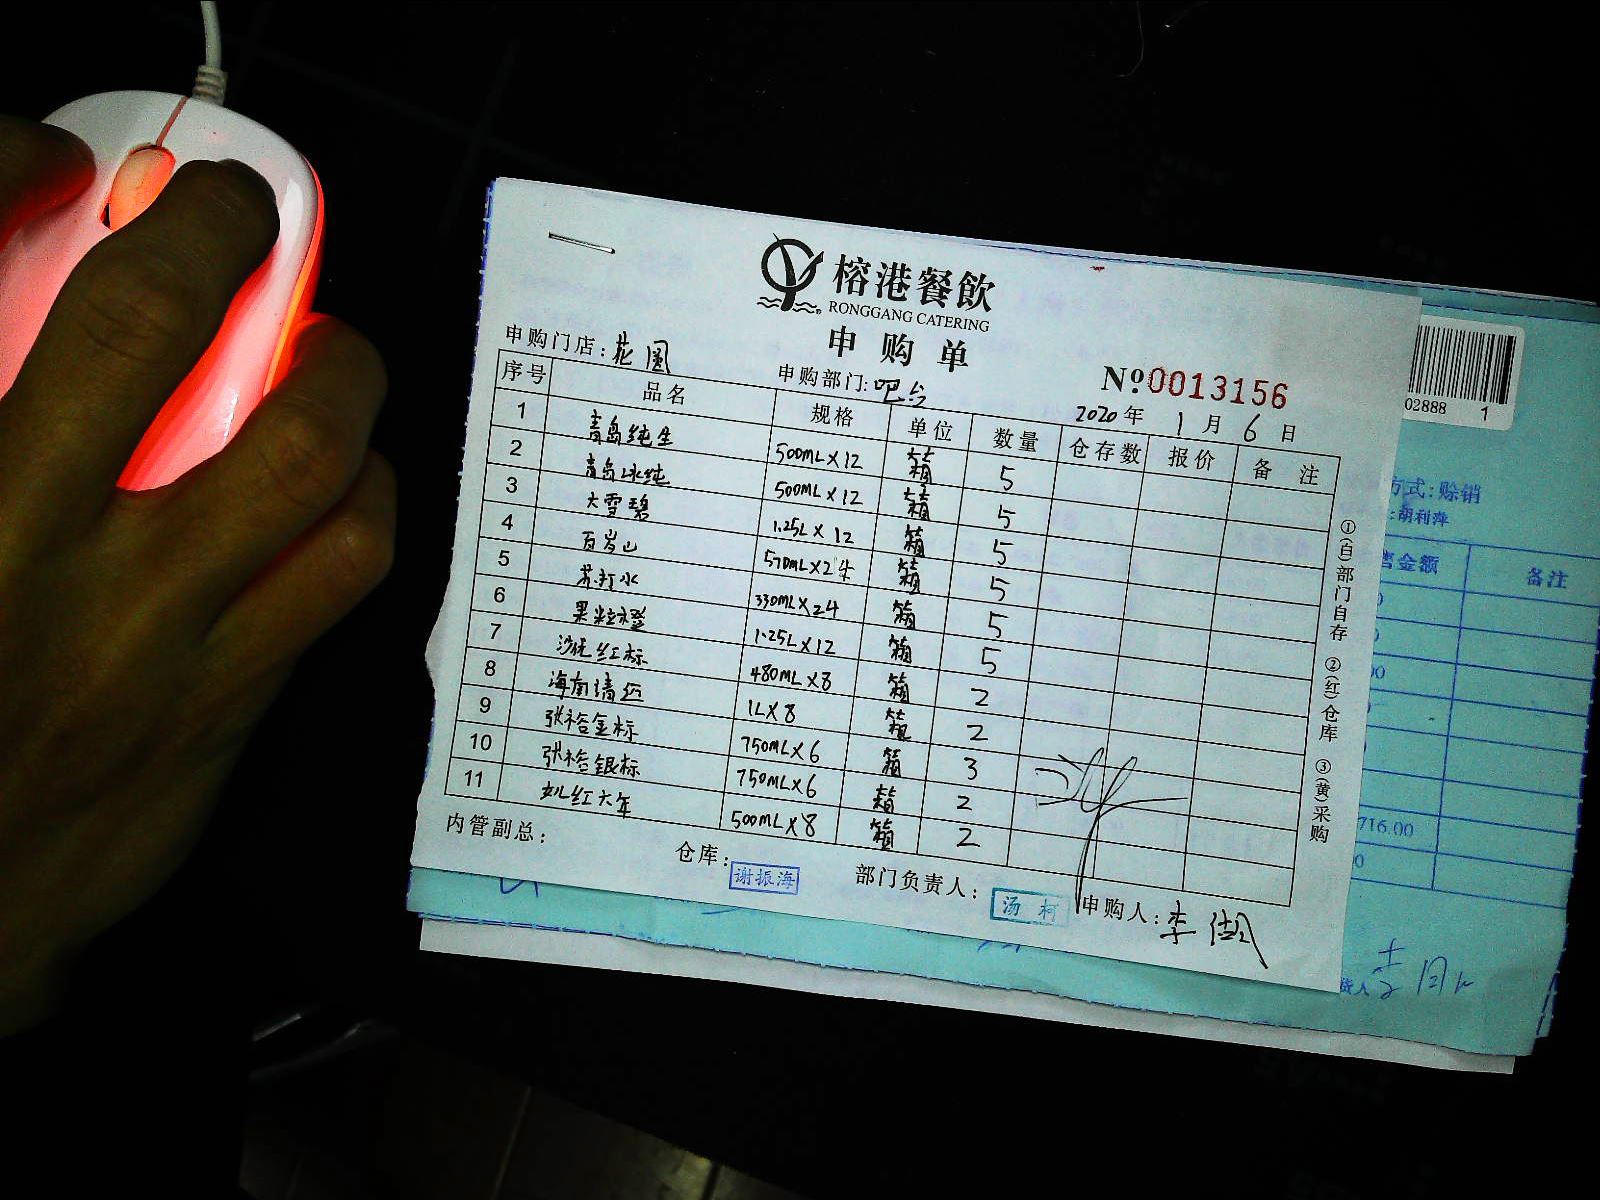 榕港餐飲
RONGGANG CATERING
申购单
申购门店:花园 申购部门:吧台 №0013156
2020年1月6日
序号 品名 规格 单位 数量 仓存数 报价 备注
1 青岛纯生 500ML×12 箱 5
2 青岛冰纯 500ML×12 箱 5
3 大雪碧 1.25L×12 箱 5
4 百岁山 570ML×24 箱 5
5 苏打水 330ML×24 箱 5
6 果粒橙 1.25L×12 箱 5
7 沙优红标 480ML×8 箱 2
8 海南清远 1L×8 箱 2
9 张裕金标 750ML×6 箱 3
10 张裕银标 750ML×6 箱 2
11 女儿红六年 500ML×8 箱 2
内管副总: 仓库:谢振海 部门负责人:汤柯 申购人:李
①(白)部门自存 ②(红)仓库 ③(黄)采购
02888 1
方式:赊销
:胡利萍
售金额 备注
716.00